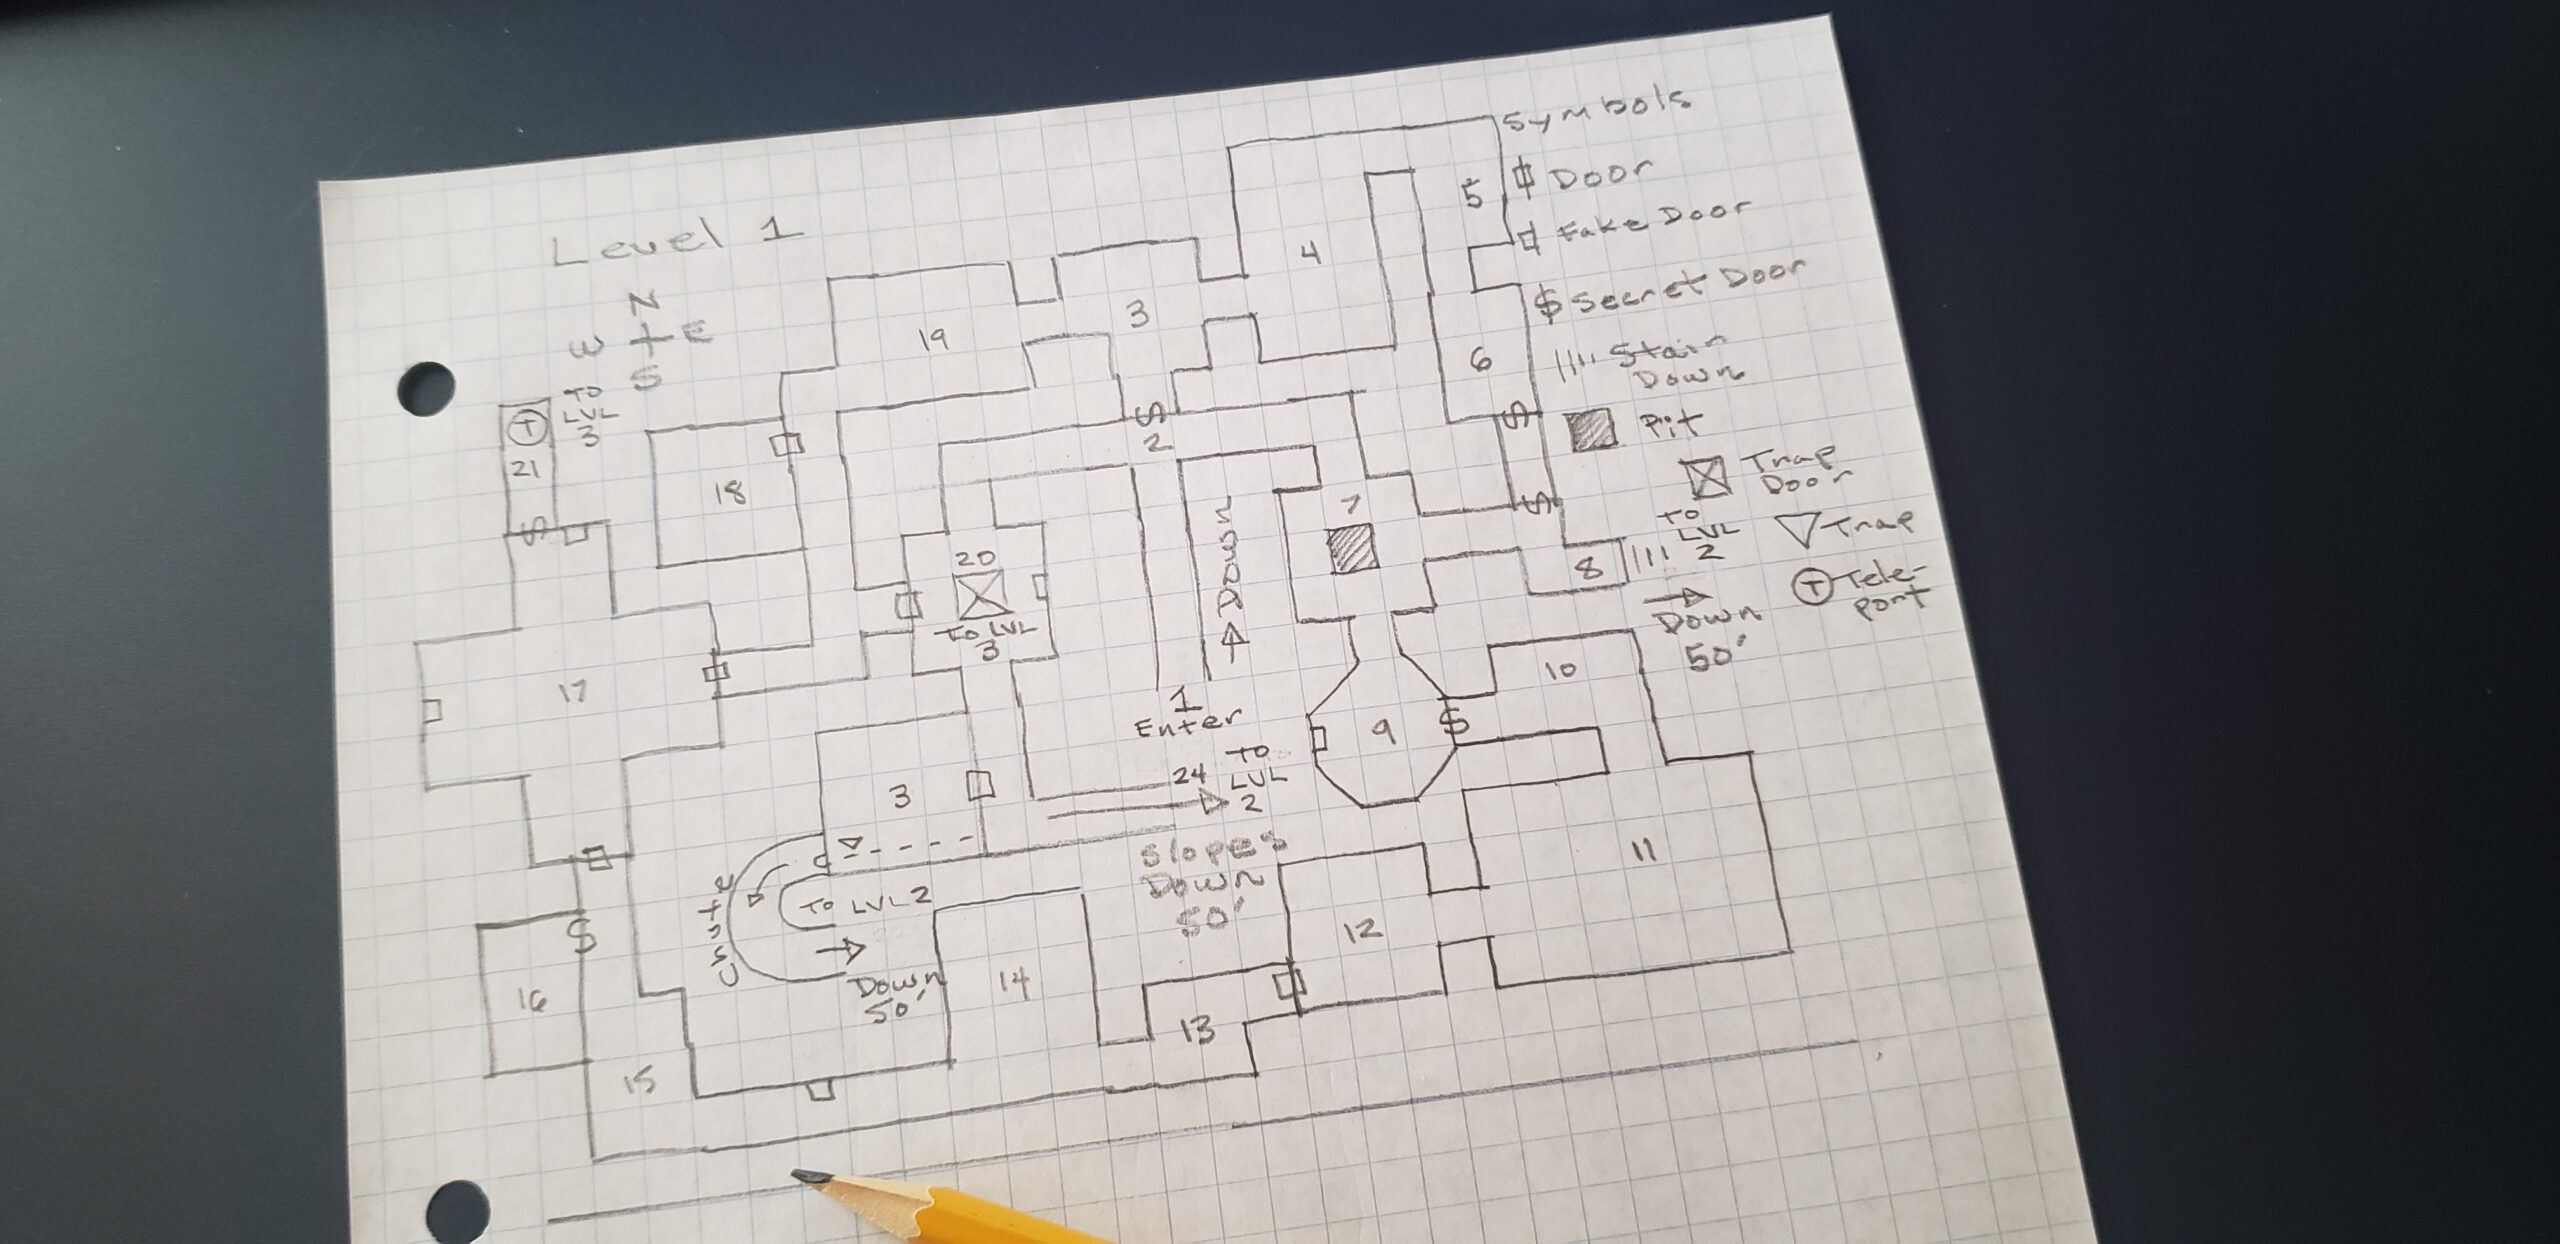 Level 1
N
W E
S
TO
LVL
3
T
21
18
19
3
4
5
6
2
7
8
TO
LVL
2
Down
50'
20
TO LVL
3
Down
1
Enter
9
10
11
12
13
14
15
16
17
3
24
TO
LVL
2
Slopes
Down
50'
Chute
TO LVL 2
Down
50'
Symbols
Door
Fake Door
Secret Door
Stair
Down
Pit
Trap
Door
Trap
T Tele-
port
S
S
S
S
S
S